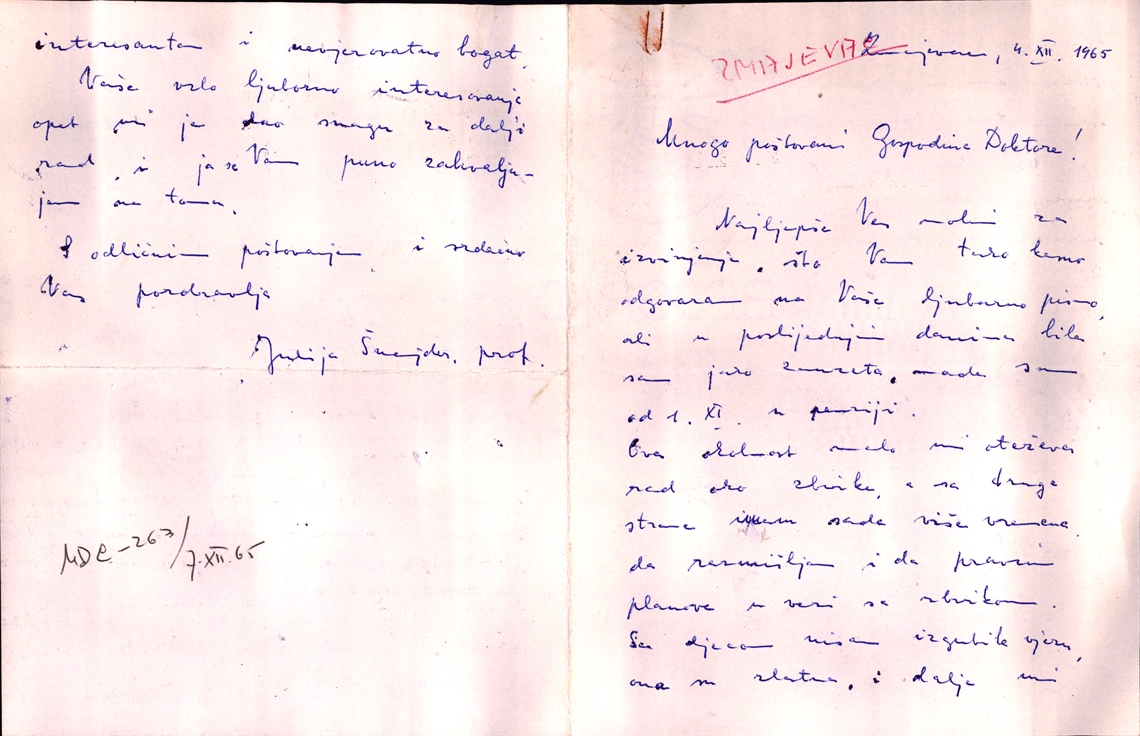 ZMAJEVAC
Zmajevac, 4. XII. 1965
Mnogo poštovani Gospodine Doktore!
Najljepše Vas molim za
izvinjenje, što Vam tako kasno
odgovaram na Vaše ljubazno pismo,
ali u posljednjim danima bila
sam jako zauzeta, mada sam
od 1. XI. u penziji.
Ova okolnost malo mi otežava
rad oko zbirke, a sa druge
strane imam sada više vremena
da razmišljam i da pravim
planove u vezi sa zbirkom.
Sa djecom nisam izgubila vezu,
ona su zlatna, i dalje mi
interesantan i nevjerovatno bogat.
Vaše vrlo ljubazno interesovanje
opet mi je dao snagu za dalji
rad, i ja se Vam puno zahvalju-
jem na tome.
S odličnim poštovanjem i srdačno
Vas pozdravlja
Julija Šnajder, prof.
MDC-263/7.XII.65